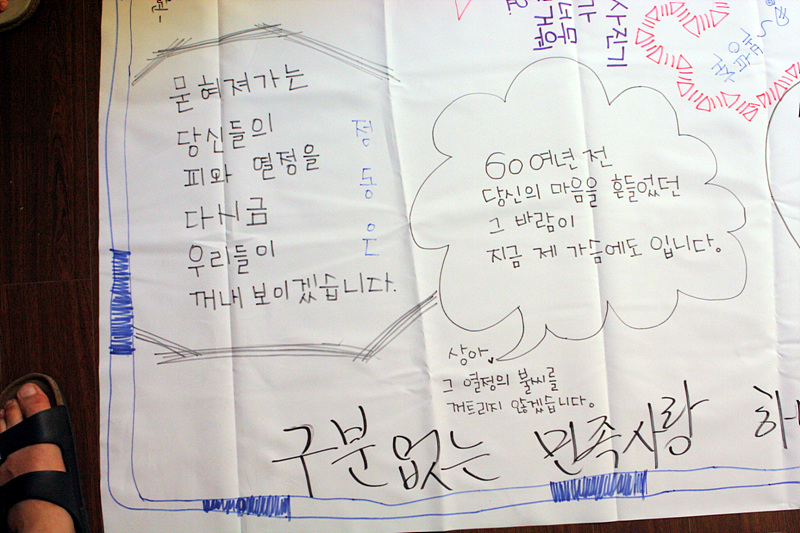 묻혀져가는
당신들의
피와 열정을
다시금
우리들이
꺼내 보이겠습니다.
정
동
은
60여년 전
당신의 마음을 흔들었던
그 바람이
지금 제 가슴에도 입니다.
상아
그 열정의 불씨를
꺼트리지 않겠습니다.
구분없는 민족사랑 하나
사진기
가